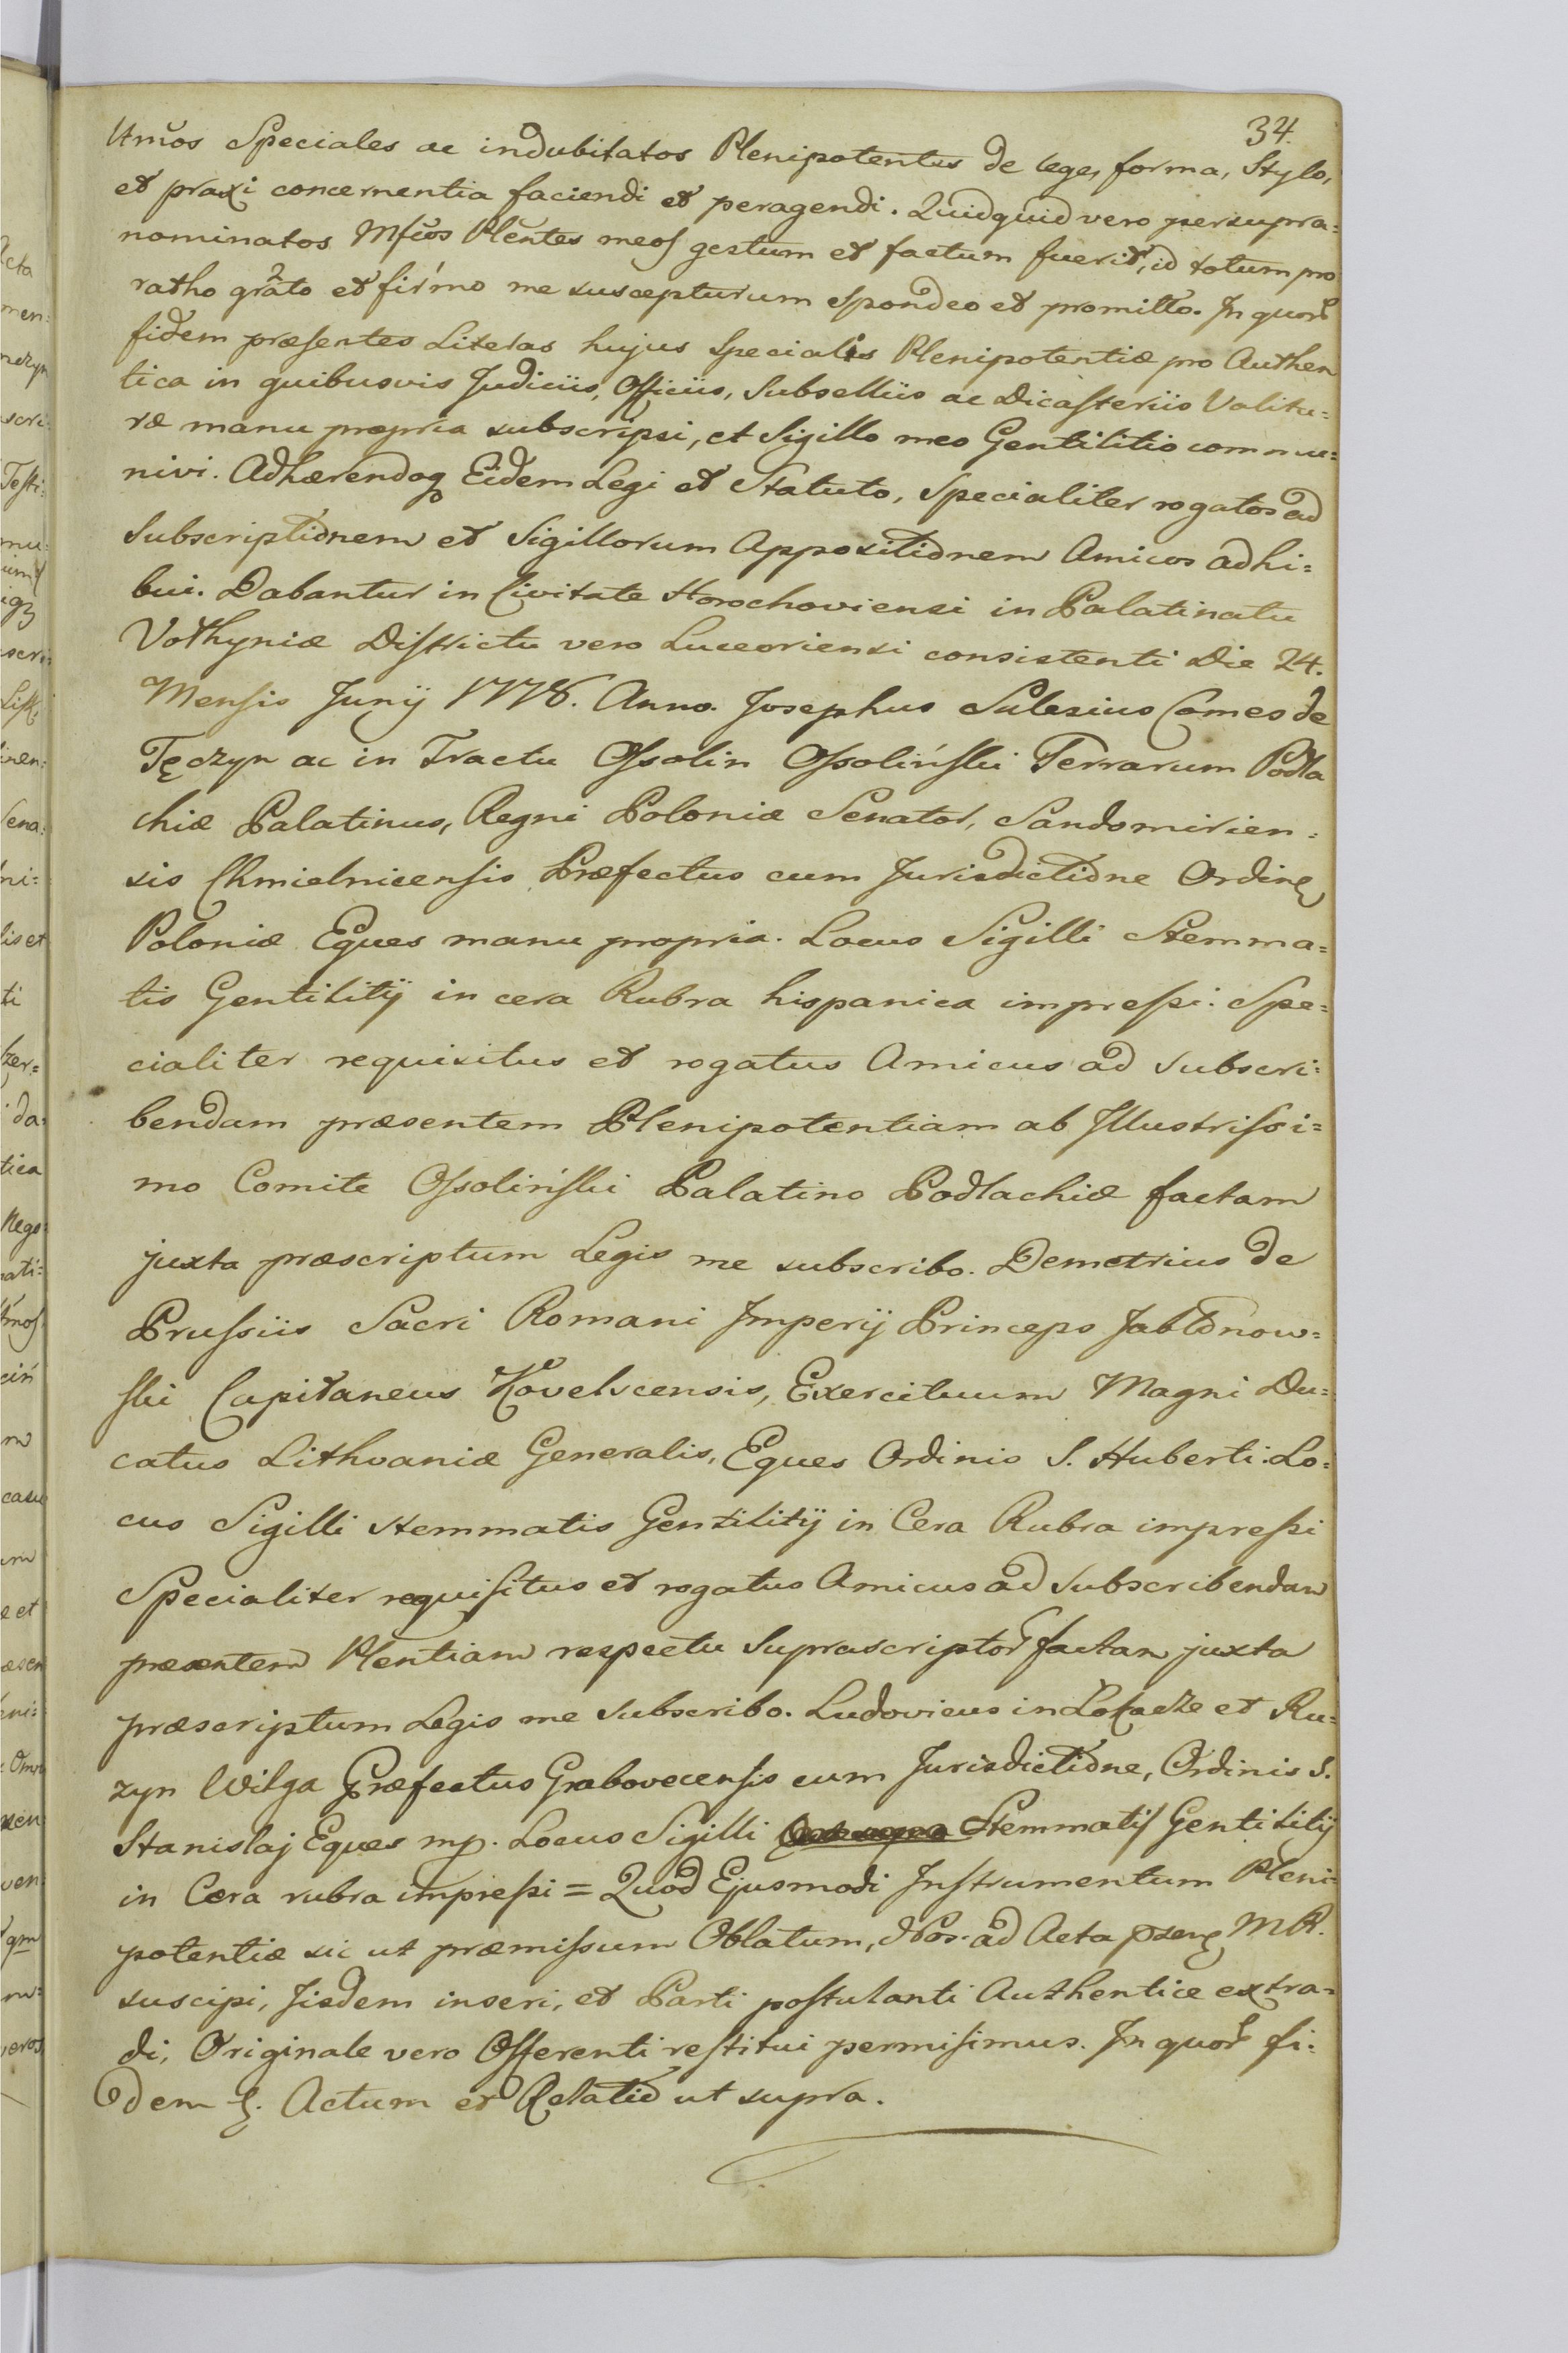 34.
Utmos Speciales ac indubitatos Plenipotentes de lege, forma, Stylo,
et praxi concernentia faciendi et peragendi. Quidquid vero per supra=
nominatos Mfcos Plentes meos gestum et factum fuerit, id totum pro
ratho grato et firmo me suscepturum spondeo et promitto. In quor
fidem præsentes Literas hujus Specialis Plenipotentiæ pro Authen
tica in quibusvis Judiciis, Officiis, Subselliis ac Dicasteriis Valitu=
ræ manu propria subscripsi, et Sigillo meo Gentilitio commu=
nivi. Adhærendoq Eidem Legi et Statuto, Specialiter rogatos ad
Subscriptionem et Sigillorum Appositionem Amicos adhi=
bui. Dabantur in Civitate Horochoviensi in Palatinatu
Volhyniæ Districtu vero Luceoriensi consistenti Die 24.
Mensis Junij 1778. Anno. Josephus Salesius Comes de
Tęczyn ac in Tractu Ossolin Ossoliński Terrarum Podla
chiæ Palatinus, Regni Poloniæ Senator, Sandomirien=
sis Chmielnicensis Præfectus cum Jurisdictione Ordine
Poloniæ Eques manu propria. Locus Sigilli Stemma=
tis Gentilitij in cera Rubra hispanica impressi: Spe=
cialiter requisitus et rogatus Amicus ad subscri=
bendam præsentem Plenipotentiam ab Illustrissi=
mo Comite Ossoliński Palatino Podlachiæ factam
juxta præscriptum Legis me subscribo. Demetrius de
Prussiis Sacri Romani Imperij Princeps Jabłonow=
ski Capitaneus Kovelscensis, Exercituum Magni Du=
catus Lithvaniæ Generalis, Eques Ordinis S. Huberti: Lo=
cus Sigilli stemmatis Gentilitij in Cera Rubra impressi
Specialiter requisitus et rogatus Amicus ad Subscribendam
præsentem Plentiam respectu Suprascriptor factam juxta
præscriptum Legis me Subscribo. Ludovicus in et Ru=
zyn Wilga Præfectus Grabovecensis cum Jurisdictione, Ordinis S.
Stanislaj Eques mp. Locus Sigilli Stemmatis Gentilitij
in Cæra rubra impressi = Quod Ejusmodi Instrumentum Pleni=
potentiæ sic ut præmissum Oblatum, Nos ad Acta M R.
suscipi, Jisdem inseri, et Parti postulanti Authentice extra=
di, Originale vero Offerenti restitui permisimus. In quor fi=
dem Actum et Relatio ut supra.